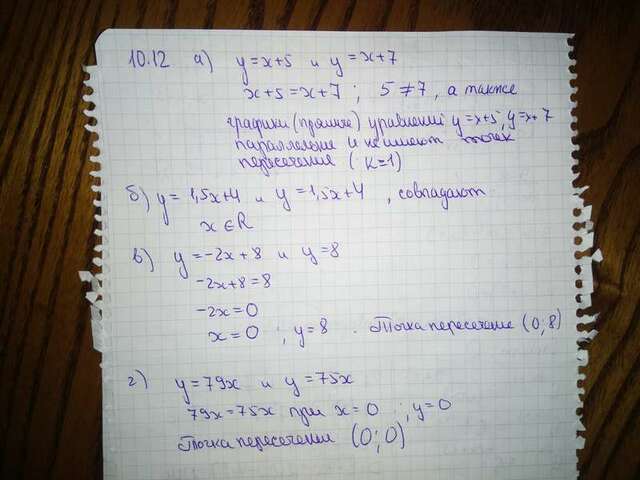 10.12 а) y=x+5 и y=x+7
x+5=x+7; 5≠7, а также
графики (прямые) уравнений y=x+5, y=x+7
параллельные и не имеют точек
пересечения (k=1)
б) y=1,5x+4 и y=1,5x+4, совпадают
x∈R
в) y=-2x+8 и y=8
-2x+8=8
-2x=0
x=0; y=8. Точка пересечения (0;8)
г) y=79x и y=75x
79x=75x при x=0; y=0
Точка пересечения (0;0)